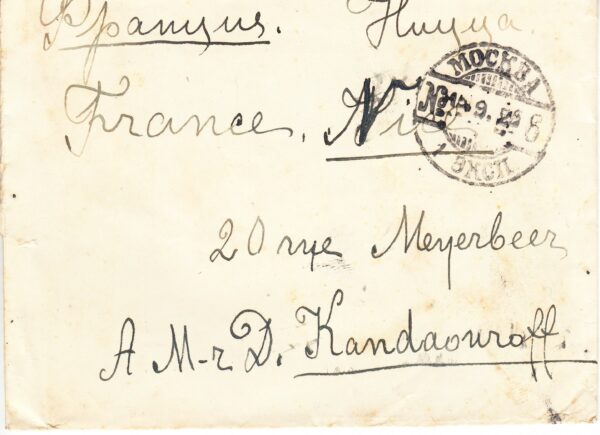 Франция. Ницца.
France. Ni
МОСКВА
9.
8
1 ЭКСП.
20 rue Meyerbeer
A M-r D. Kandaouroff.